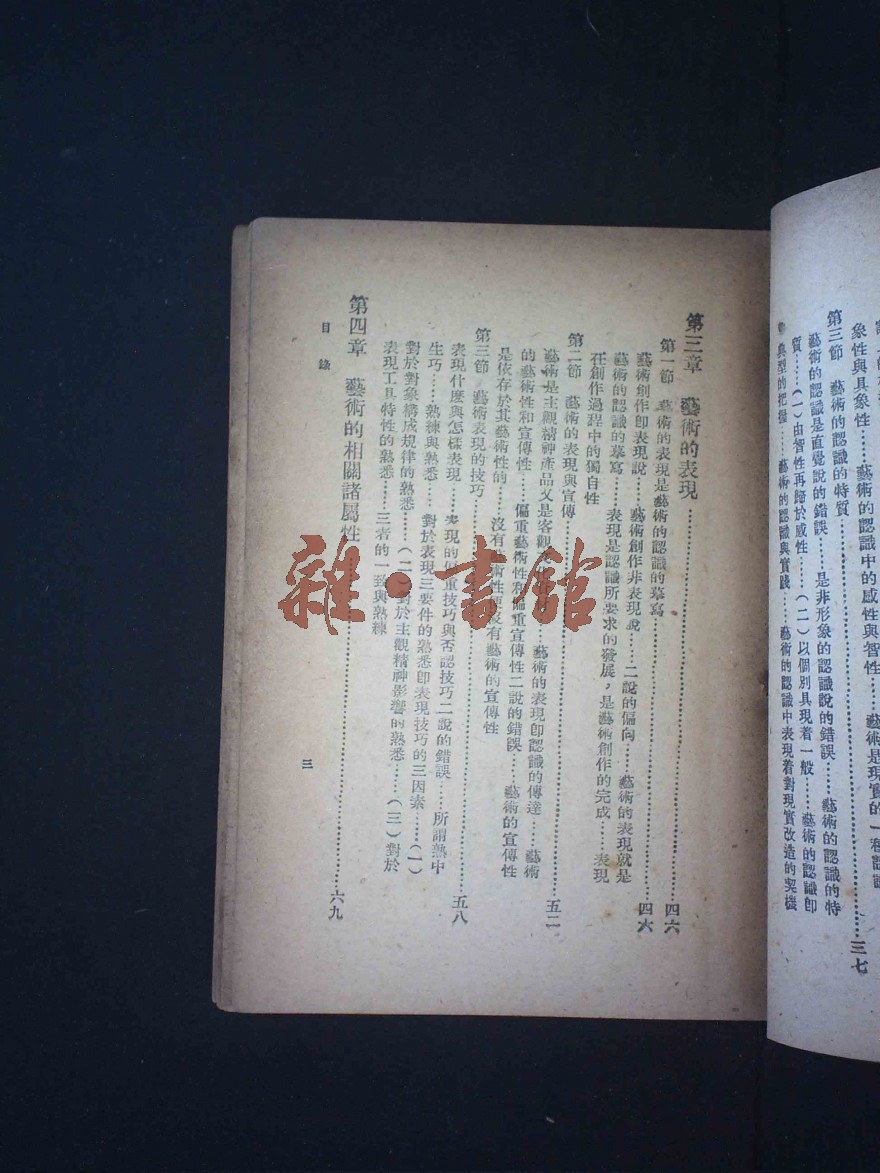 象性與具象性……藝術的認識中的感性與智性……藝術是現實的一種認識
第三節 藝術的認識的特質……三七
藝術的認識是直覺說的錯誤……是非形象的認識說的錯誤……藝術的認識的特
質……（一）由智性再歸於感性……（二）以個別具現着一般……藝術的認識卽
典型的把握……藝術的認識與實踐……藝術的認識中表現着對現實改造的契機
第三章 藝術的表現……四六
第一節 藝術的表現是藝術的認識的摹寫……四六
藝術創作卽表現說……藝術創作非表現說……二說的偏向……藝術的表現就是
藝術的認識的摹寫……表現是認識所要求的發展，是藝術創作的完成……表現
在創作過程中的獨自性
第二節 藝術的表現與宣傳……五二
藝術是主觀精神產品又是客觀……藝術的表現卽認識的傳達……藝術
的藝術性和宣傳性……偏重藝術性和偏重宣傳性二說的錯誤……藝術的宣傳性
是依存於其藝術性的……沒有藝術性便沒有藝術的宣傳性
第三節 藝術表現的技巧……五八
表現什麼與怎樣表現……表現的偏重技巧與否認技巧二說的錯誤……所謂熟中
生巧……熟練與熟悉……對於表現三要件的熟悉卽表現技巧的三因素……（一）
對於對象構成規律的熟悉……（二）對於主觀精神影響的熟悉……（三）對於
表現工具特性的熟悉……三者的一致與熟練
第四章 藝術的相關諸屬性……六九
目錄
三
雜·書館